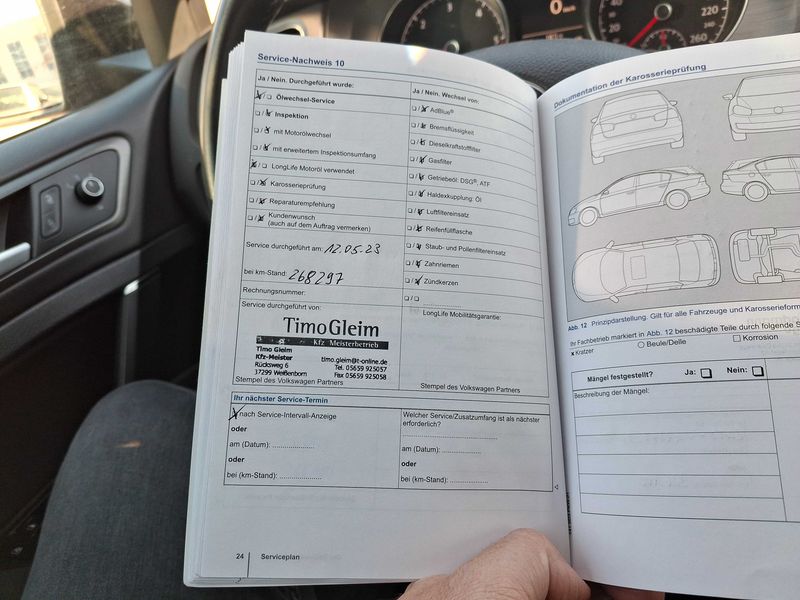 Service-Nachweis 10
Ja / Nein. Durchgeführt wurde:
Ölwechsel-Service
Inspektion
mit Motorölwechsel
mit erweitertem Inspektionsumfang
LongLife Motoröl verwendet
Karosserieprüfung
Reparaturempfehlung
Kundenwunsch
(auch auf dem Auftrag vermerken)
Service durchgeführt am: 12.05.23
bei km-Stand: 268297
Rechnungsnummer:
Service durchgeführt von:
Timo Gleim
Kfz Meisterbetrieb
Timo Gleim
Kfz-Meister
Rücksweg 6
37299 Weißenborn
timo.gleim@t-online.de
Tel. 05659 925057
Fax 05659 925058
Stempel des Volkswagen Partners
Ja / Nein. Wechsel von:
AdBlue®
Bremsflüssigkeit
Dieselkraftstofffilter
Gasfilter
Getriebeöl: DSG®, ATF
Haldexkupplung: Öl
Luftfiltereinsatz
Reifenfüllflasche
Staub- und Pollenfiltereinsatz
Zahnriemen
Zündkerzen
LongLife Mobilitätsgarantie:
Stempel des Volkswagen Partners
Ihr nächster Service-Termin
nach Service-Intervall-Anzeige
oder
am (Datum): ....................
oder
bei (km-Stand): ....................
Welcher Service/Zusatzumfang ist als nächster
erforderlich?
am (Datum): ....................
oder
bei (km-Stand): ....................
24 Serviceplan
Dokumentation der Karosserieprüfung
Abb. 12 Prinzipdarstellung. Gilt für alle Fahrzeuge und Karosserieform
Ihr Fachbetrieb markiert in Abb. 12 beschädigte Teile durch folgende S
x Kratzer
Beule/Delle
Korrosion
Mängel festgestellt? Ja: Nein:
Beschreibung der Mängel:
0
220
260